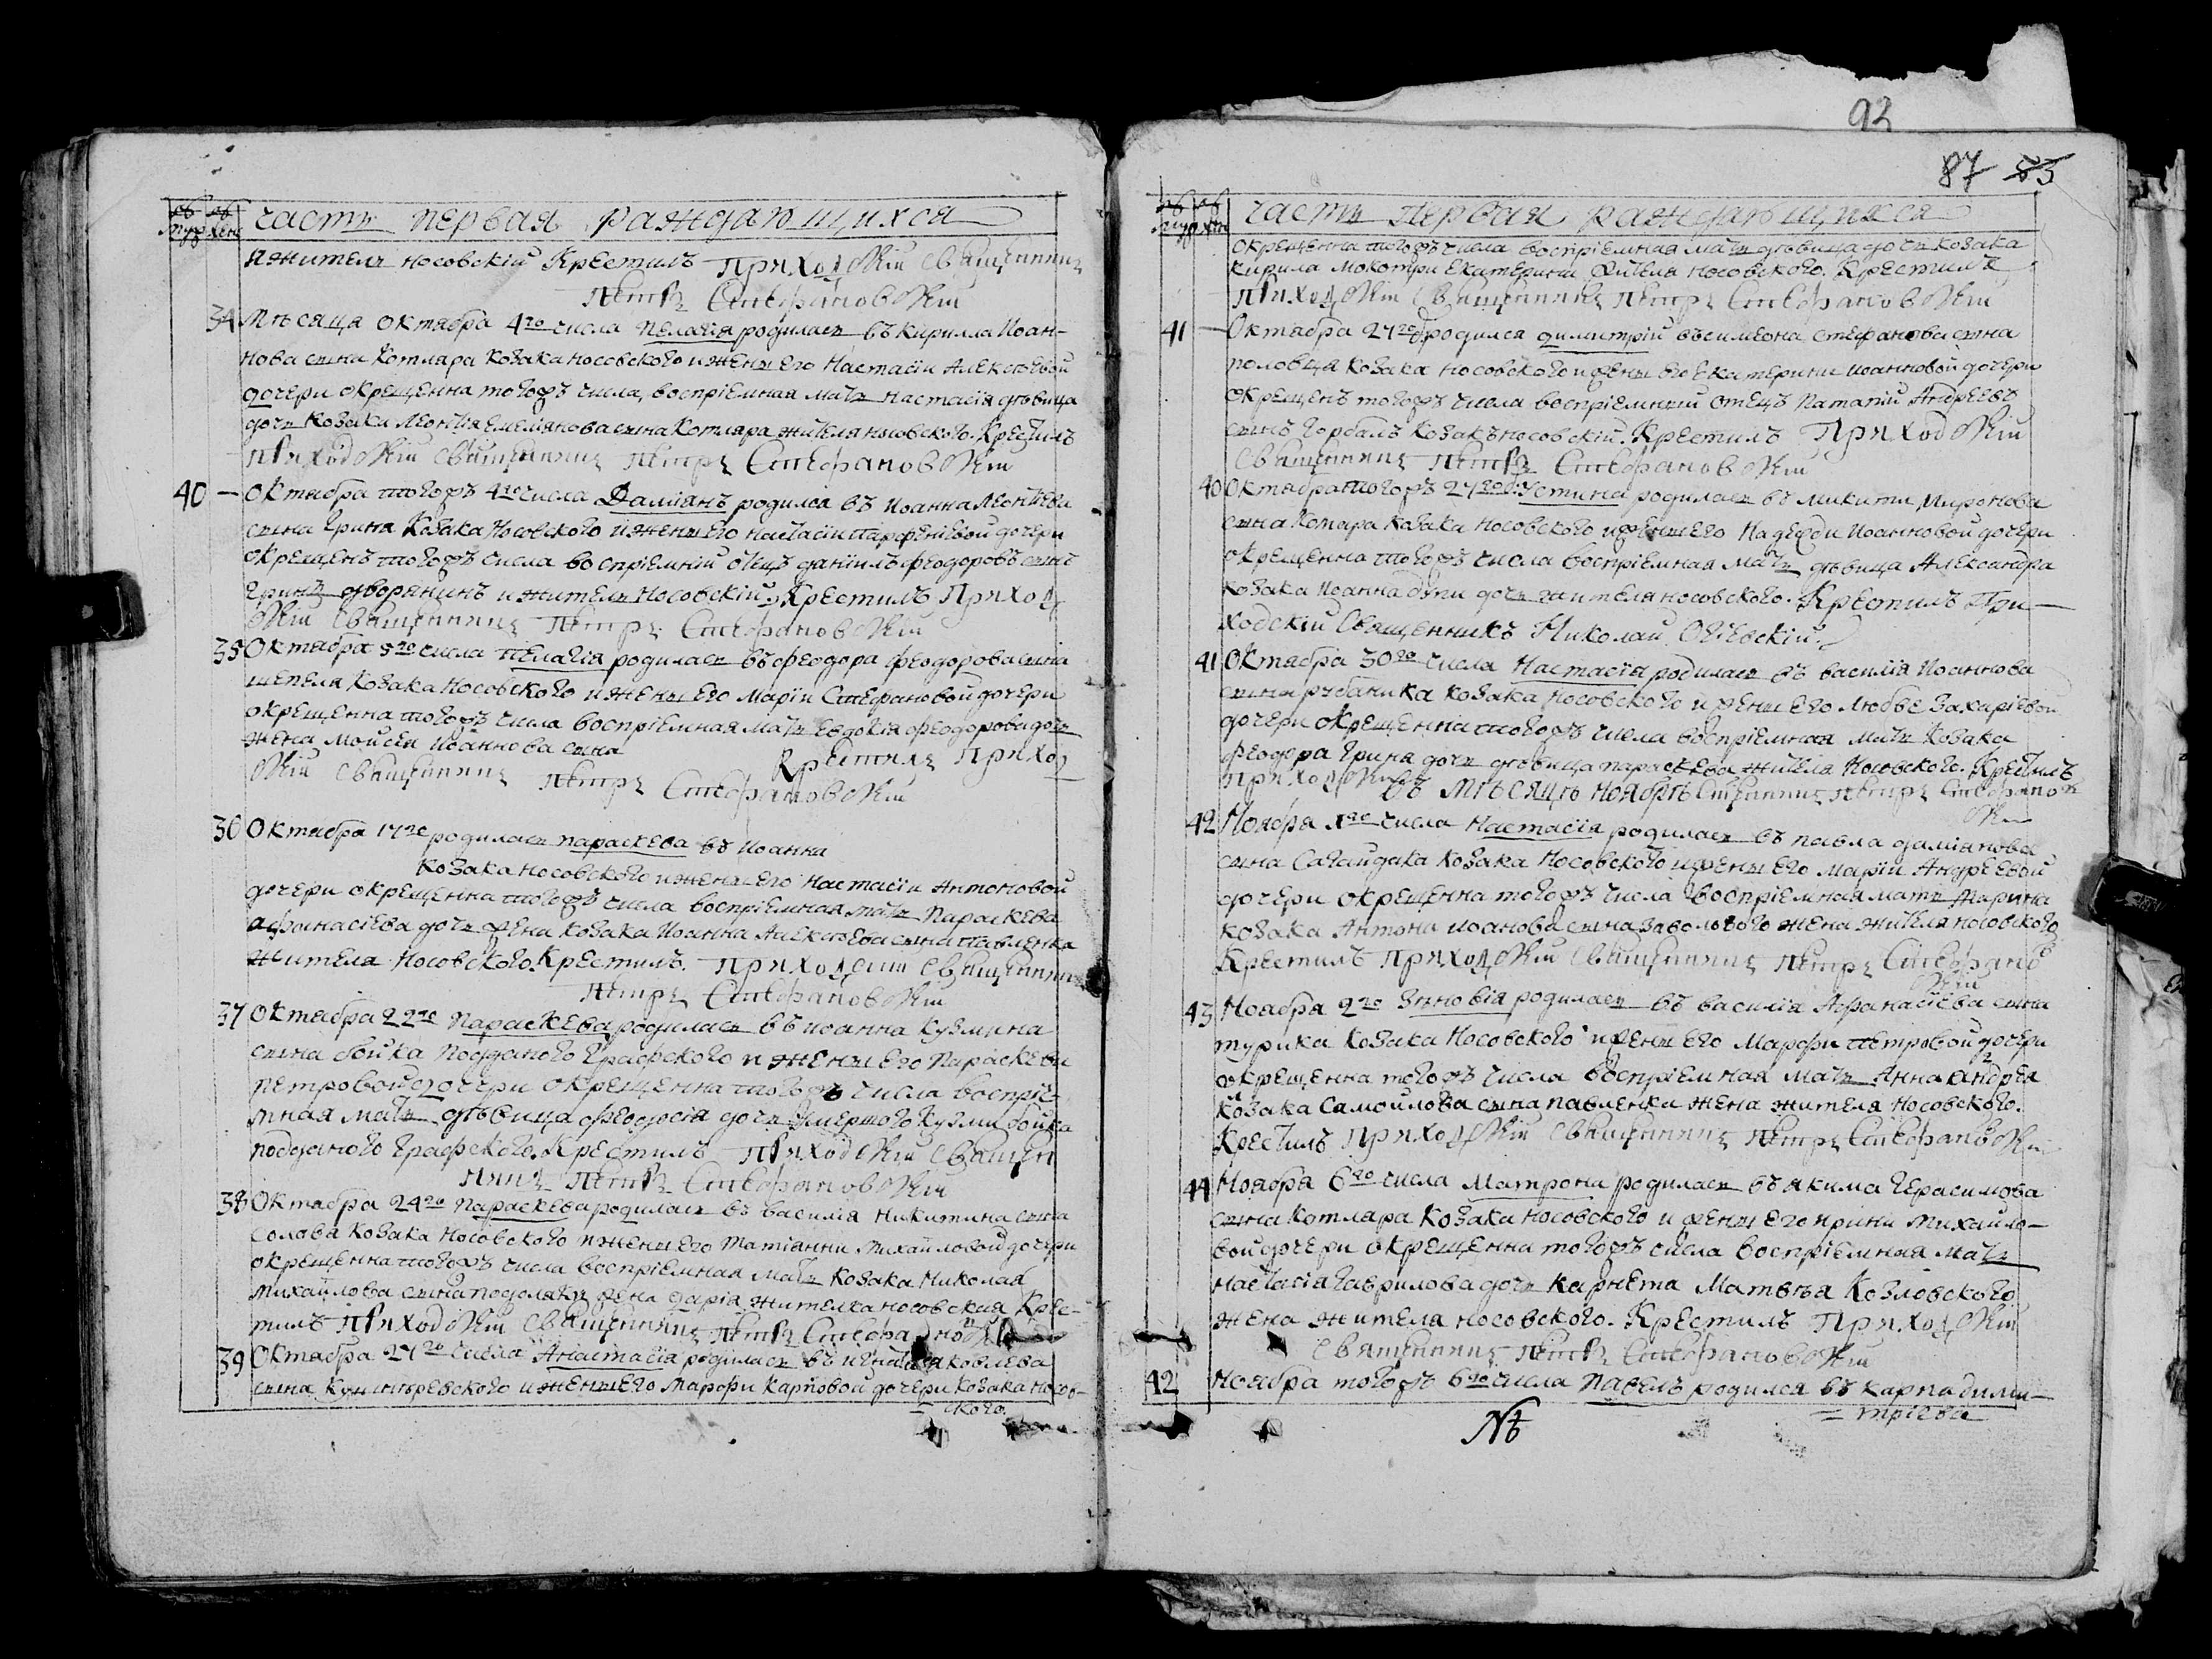 93
87 85
часть первая раждающихся
и житель носовскій Крестилъ приходскій священникъ
Петръ Стефановскій
34 Мѣсяца октабра 4го числа Пелагія родилась въ кирилла Иоан-
нова сына Котляра козака носовского и жены его Настасіи Алексѣевой
дочери окрещенна тогожъ числа, воспріемная мать Настасія дѣвица
дочь козака Леонтія емеліянова сына Котляра жителя носовского. Крестилъ
приходскій священникъ Петръ Стефановскій
40 — октабра тогожъ 4го числа Даміянъ родился въ Иоанна Леонтіева
сына Гриня козака Носовского и жены его настасіи парфеніевой дочери
окрещенъ тогожъ числа воспріемній отецъ даніилъ феодоровъ сынъ
Гринь дворянинъ и житель Носовскій. Крестилъ Приход
скій священникъ Петръ Стефановскій
35 Октабра 5го числа пелагія родилась въ феодора феодорова сына
шепеля козака Носовского и жены его Маріи Стефановой дочери
окрещенна тогожъ числа воспріемная мать Евдокія феодорова дочь
жена Мойсея Иоаннова сына
Крестилъ Приход
скій священникъ Петръ Стефановскій
36 Октабра 17го родилась параскева въ Иоанна
козака носовского и жены его Настасіи Антоновой
дочери окрещенна тогожъ числа воспріемная мать Параскева
афанасіева дочь жена козака Иоанна Алексѣева сына павленка
жителя Носовского. Крестилъ. приходскій священникъ
Петръ Стефановскій
37 октабра 22го Параскева родилась въ иоанна кузмина
сына бойка Подданого Графского и жены его Параскеви
петровой дочери окрещенна тогожъ числа воспріе-
мная мать дѣвица феодосія дочь умершого Кузми бойка
подданого Графского. Крестилъ приходскій священ
никъ Петръ Стефановскій
38 Октабра 24го Параскева родилась въ василія Никитина сына
Солова козака Носовского и жены его Татіанни Михайловой дочери
окрещенна тогожъ числа воспріемная мать козака Николая
Михайлова сына жена дарія жителка носовская Крес-
тилъ приходскій священникъ Петръ Стефановскій
39 Октабра 27го числа Анастасія родилась въ яковлева
сына и жены его Марфи карповой дочери козака носов-
= ского.
часть первая раждающихся
окрещенна тогожъ числа воспріемная мать дѣвица дочь козака
кирила Мокотри Екатерина жителя носовского. Крестилъ
приходскій священникъ Петръ Стефановскій
41 — Октабра 27го родился димитрій въ симеона стефанова сына
половця козака носовского и жены его екатерини иоанновой дочери
окрещенъ тогожъ числа воспріемный отецъ Патапій Андреевъ
сынъ горбалъ козакъ носовскій. Крестилъ Приходскій
священникъ Петръ Стефановскій
40 Октабра тогожъ 27го Устина родилась въ микити Миронова
сына Комара козака носовского и жены его Надежди Иоанновой дочери
окрещенна тогожъ числа воспріемная мать дѣвица Александра
козака Иоанна дочь жителя носовского. Крестилъ При-
ходскій Священникъ Николай
41 Октабра 30го числа Настасія родилась въ василія Иоаннова
сына рубаника козака носовского и жены его любве захаріевой
дочери окрещенна тогожъ числа воспріемная мать козака
феодора Гриня дочь дѣвица параскева жителя Носовского. Крестилъ
приходскій священникъ Петръ Стефанов
скій
въ Мѣсяцѣ ноябрѣ
42 Ноабра 1го числа Настасія родилась въ павла даміянова
сына Сагайдака козака носовского и жены его Маріи Андреевой
дочери окрещенна тогожъ числа воспріемная мать Марина
козака Антона иоанова сына жена жителя носовского
Крестилъ приходскій священникъ Петръ Стефанов
скій
43 Ноабра 2го Зѣновія родилась въ василія Афанасіева сына
турика козака Носовского и жены его Марфи петровой дочери
окрещенна тогожъ числа воспріемная мать Анна андрея
козака Самойлова сына павленка жена жителя Носовского.
Крестилъ приходскій священникъ Петръ Стефановскій
44 Ноабра 6го числа Матрона родилась въ якима Герасимова
сына котляра козака носовского и жены его ирини Михайло-
вой дочери окрещенна тогожъ числа воспріемная мать
настасія гаврилова дочь карнета Матвѣя Козловского
жена жителя носовского. Крестилъ Приходскій
священникъ Петръ Стефановскій
42 Ноабра тогожъ 6го числа Павелъ родился въ карпа дими-
= тріева